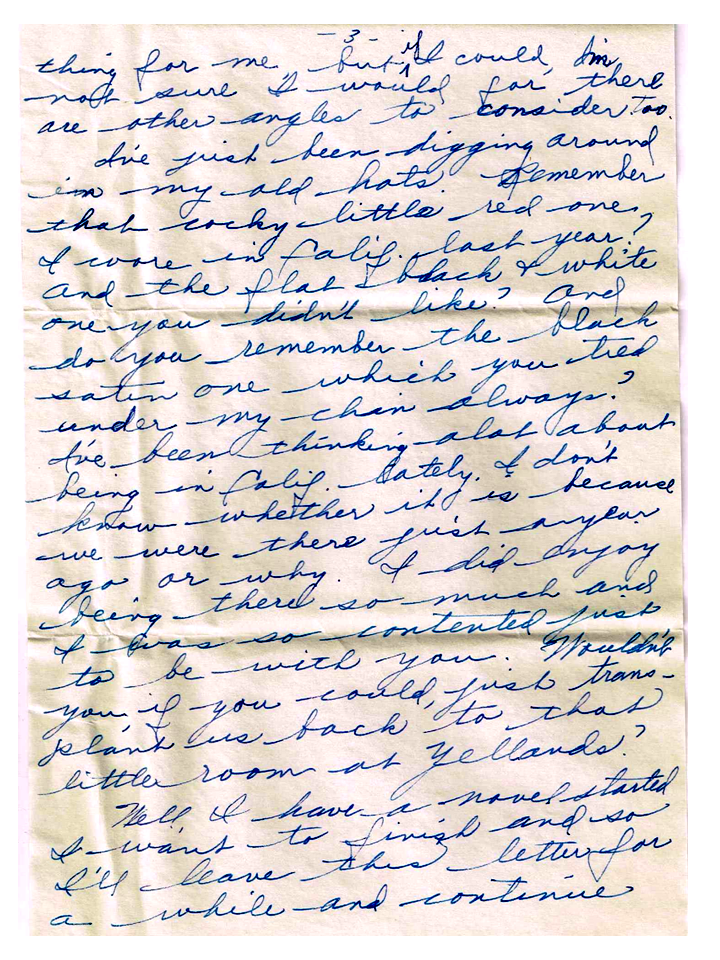 - 3 -
thing for me but if I could, I'm
not sure I would for there
are other angles to consider too.
I've just been digging around
in my old hats. Remember
that cocky little red one
I wore in Calif. last year?
And the flat black & white
one you didn't like? And
do you remember the black
satin one which you tied
under my chin always?
I've been thinking alot about
being in Calif. lately. I don't
know whether it is because
we were there just a year
ago or why. I did enjoy
being there so much and
I was so contented just
to be with you. Wouldn't
you, if you could, just trans-
plant us back to that
little room at Yellands?
Well I have a novel started
I want to finish and so
I'll leave this letter for
a while and continue